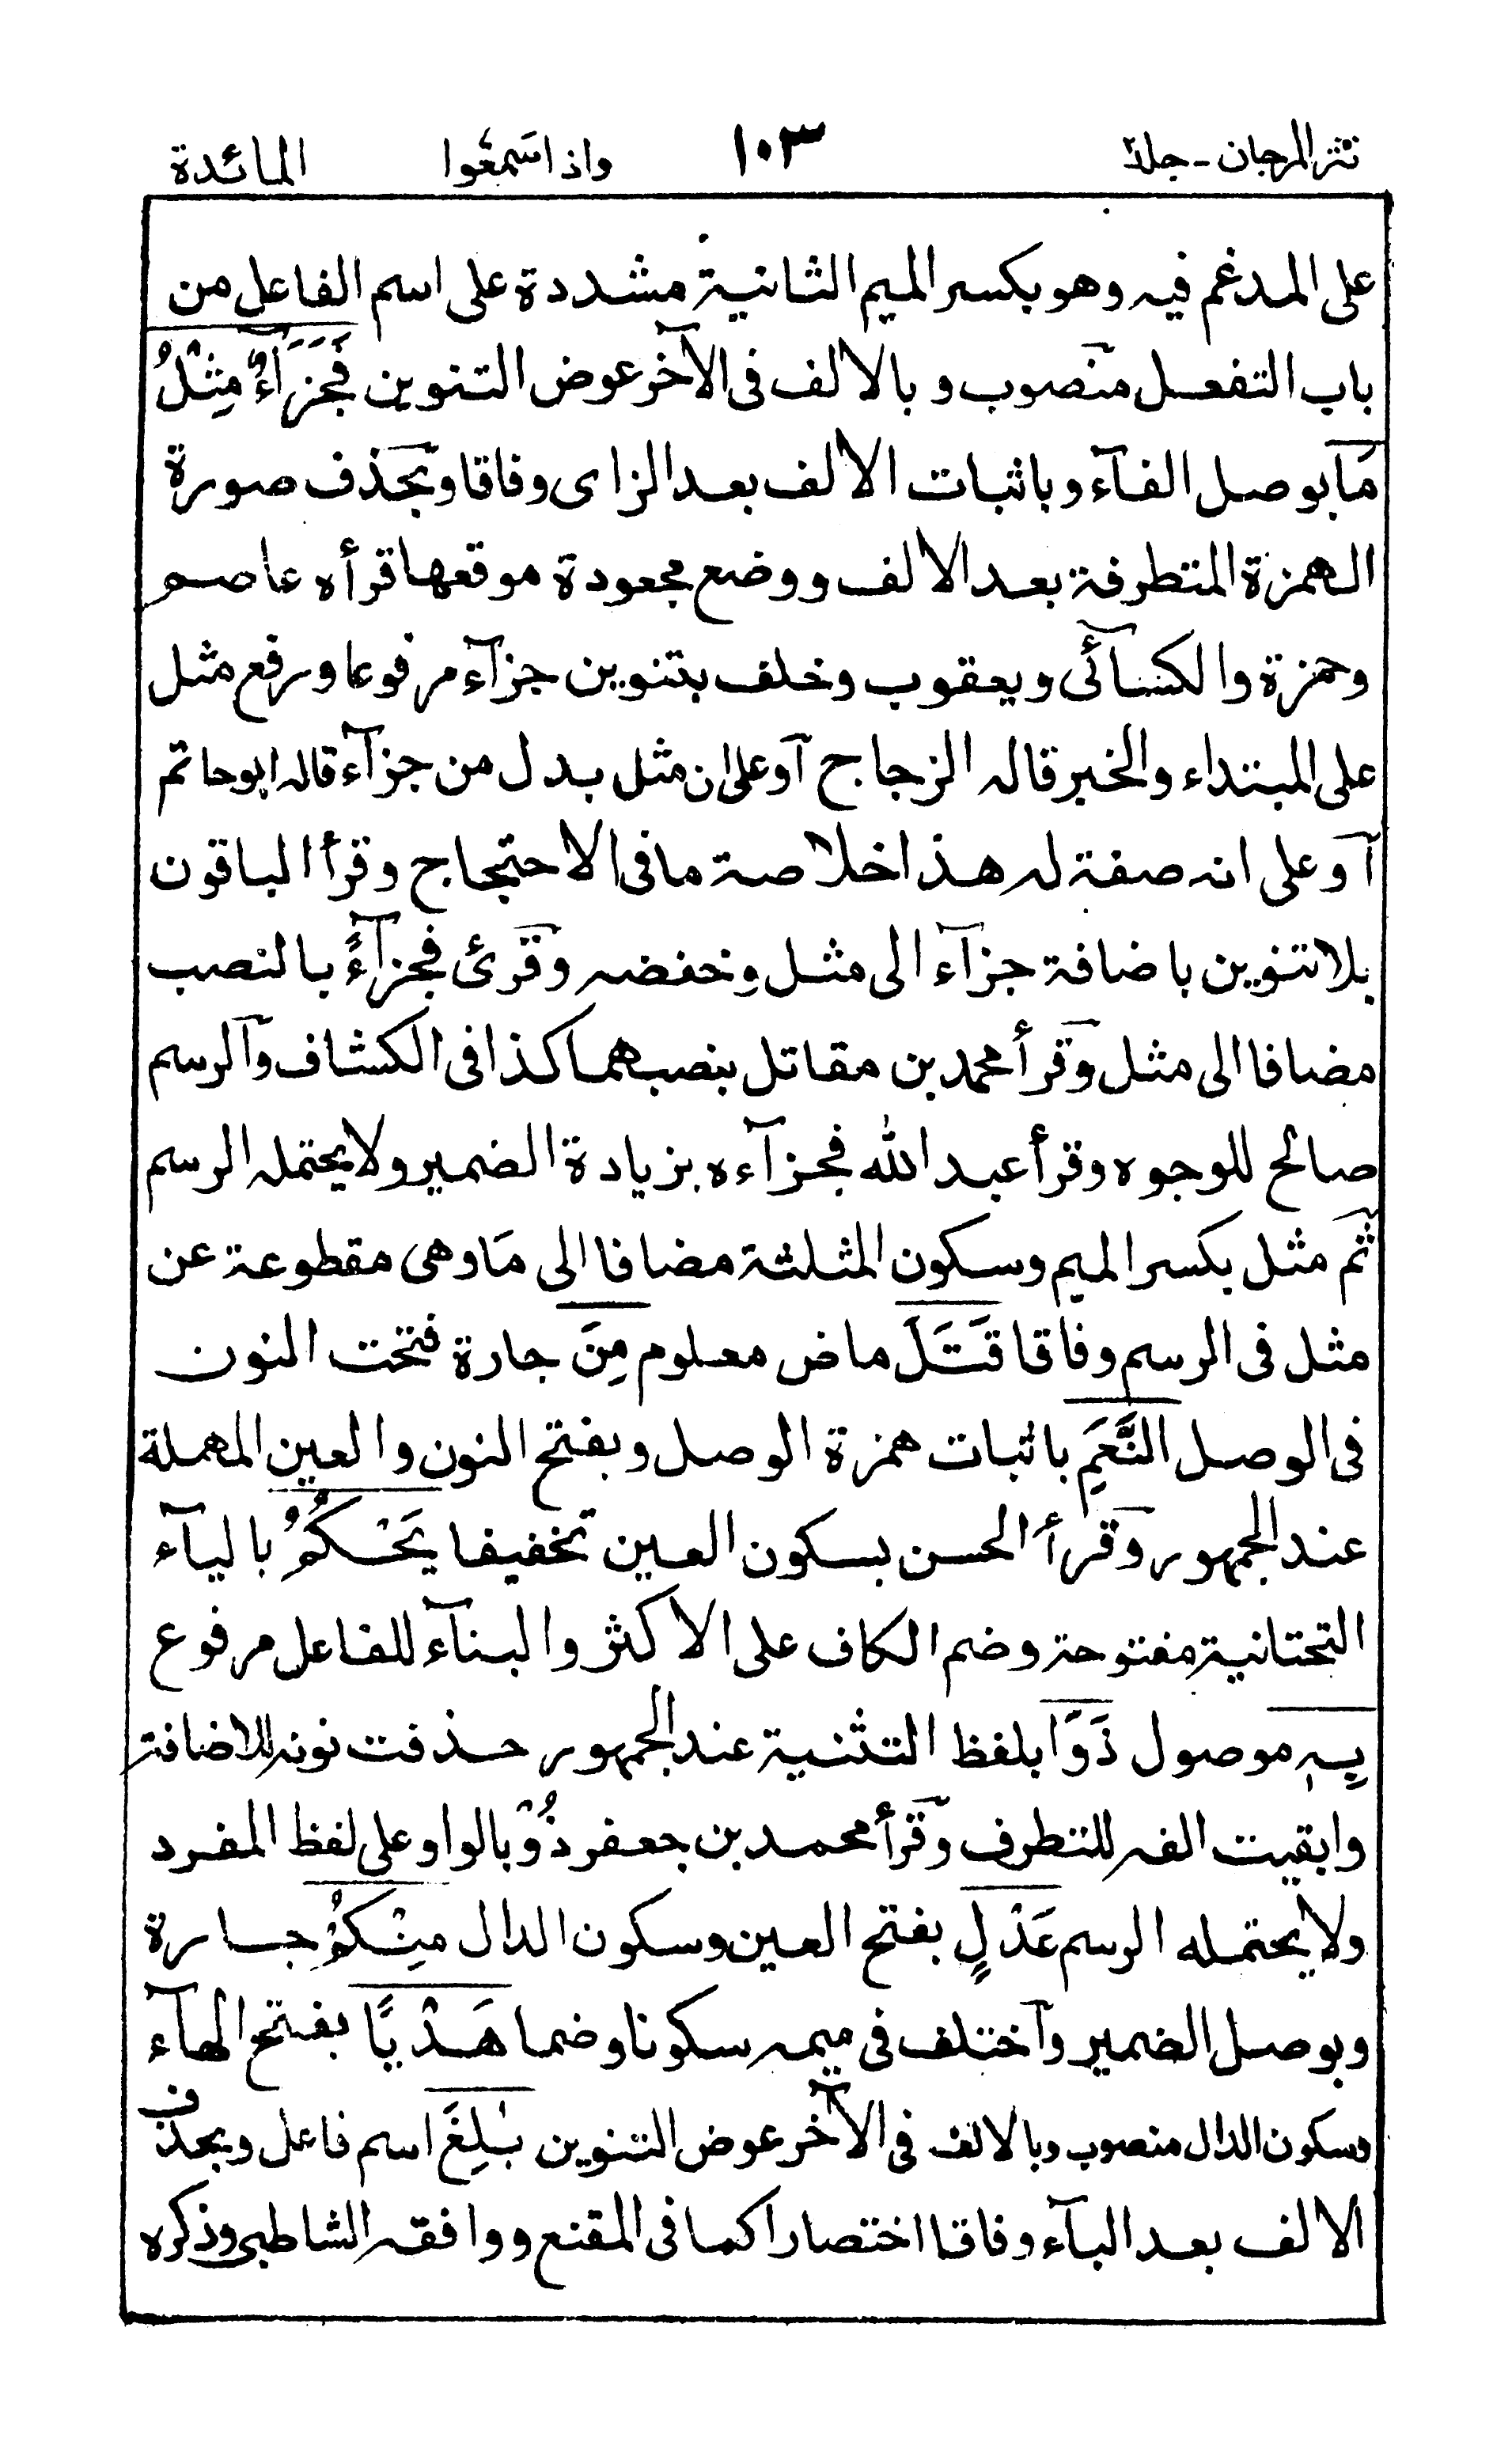 نثر المرجان - جلد٢ ١٠٣ واذا سَمِعُوا المائدة
على المدغم فيه وهو بكسر الميم الثانية مشددة على اسم الفاعل من
باب التفعل منصوب و بالالف فى الآخر عوض التنوين فَجَزَآءٌ مِثْلُ
مَا بوصل الفآء وباثبات الالف بعد الزاى وفاقا وبحذف صورة
الهمزة المتطرفة بعد الالف ووضع مجعودة موقعها قرأه عاصم
وحمزة والكسآئى ويعقوب وخلف بتنوين جزآء مرفوعا ورفع مثل
على المبتداء والخبر قاله الزجاج آو على ان مثل بدل من جزآء قاله ابو حاتم
آو على انه صفة له هذا خلاصة ما فى الاحتجاج وقرأ الباقون
بلا تنوين باضافة جزآء الى مثل وخفضه وقرئ فجزآءً بالنصب
مضافا الى مثل وقرأ محمد بن مقاتل بنصبهما كذا فى الكشاف وآلرسم
صالح للوجوه وقرأ عبد الله فجزآءه بزيادة الضمير ولا يحتمله الرسم
ثم مثل بكسر الميم وسكون المثلثة مضافا الى مَا وهى مقطوعة عن
مثل فى الرسم وفاقا قَتَلَ ماض معلوم مِنَ جارة فتحت النون
فى الوصل النَّعَمِ باثبات همزة الوصل وبفتح النون والعين المهملة
عند الجمهور وقرأ الحسن بسكون العين تخفيفا يَحْكُمُ باليآء
التحتانية مفتوحة وضم الكاف على الاكثر والبنآء للفاعل مرفوع
بِهٖ موصول ذَوَا بلفظ التثنية عند الجمهور حذفت نونه للاضافة
وابقيت الفه للتطرف وقرأ محمد بن جعفر ذُوْ بالواو على لفظ المفرد
ولا يحتمله الرسم عَدْلٍ بفتح العين وسكون الدال مِنْكُمْ جارة
وبوصل الضمير وآختلف فى ميمه سكونا وضما هَدْيًا بفتح الهآء
وسكون الدال منصوب وبالالف فى الآخر عوض التنوين بٰلِغَ اسم فاعل وبحذف
الالف بعد البآء وفاقا اختصارا كما فى المقنع ووافقه الشاطبى وذكره